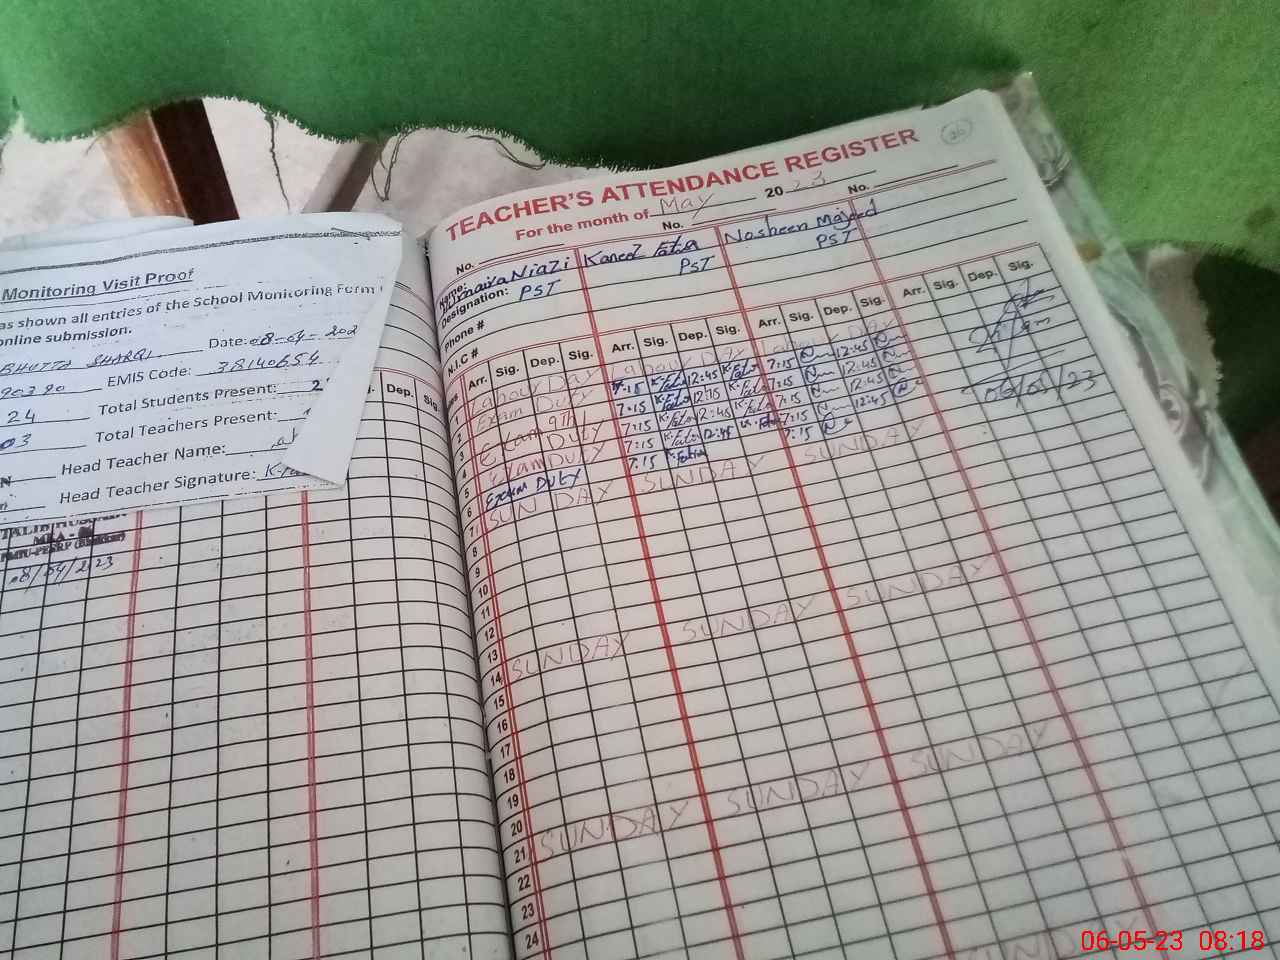 Monitoring Visit Proof
as shown all entries of the School Monitoring Form
online submission.
BHUTTA SHARQI Date: 08-04-202
90390 EMIS Code: 38140654
24 Total Students Present: 2
03 Total Teachers Present:
Head Teacher Name:
N Head Teacher Signature:
MEA -
08/04/2023
Dep. Sig.
TEACHER'S ATTENDANCE REGISTER
For the month of May 2023
No. No. No.
Name: Humaira Niazi Kaneez Fatia Nosheen Majeed
Designation: PST PST PST
Phone #
N.I.C #
Arr. Sig. Dep. Sig. Arr. Sig. Dep. Sig. Arr. Sig. Dep. Sig. Arr. Sig. Dep. Sig.
1 Labour Day Labour Day Labour DAY
2 Exam Duty 7:15 12:45 7:15 12:45
3 Exam 9TH 7:15 12:15 7:15 12:45
4 Exam DUTY 7:15 12:45 7:15 12:45
5 7:15 12:45 7:15 12:45
6 Exam DUTY 7:15 7:15
7 SUNDAY SUNDAY SUNDAY
8
9
10
11
12
13
14 SUNDAY SUNDAY SUNDAY
15
16
17
18
19
20
21 SUNDAY SUNDAY SUNDAY
22
23
24
06/05/23
06-05-23 08:18